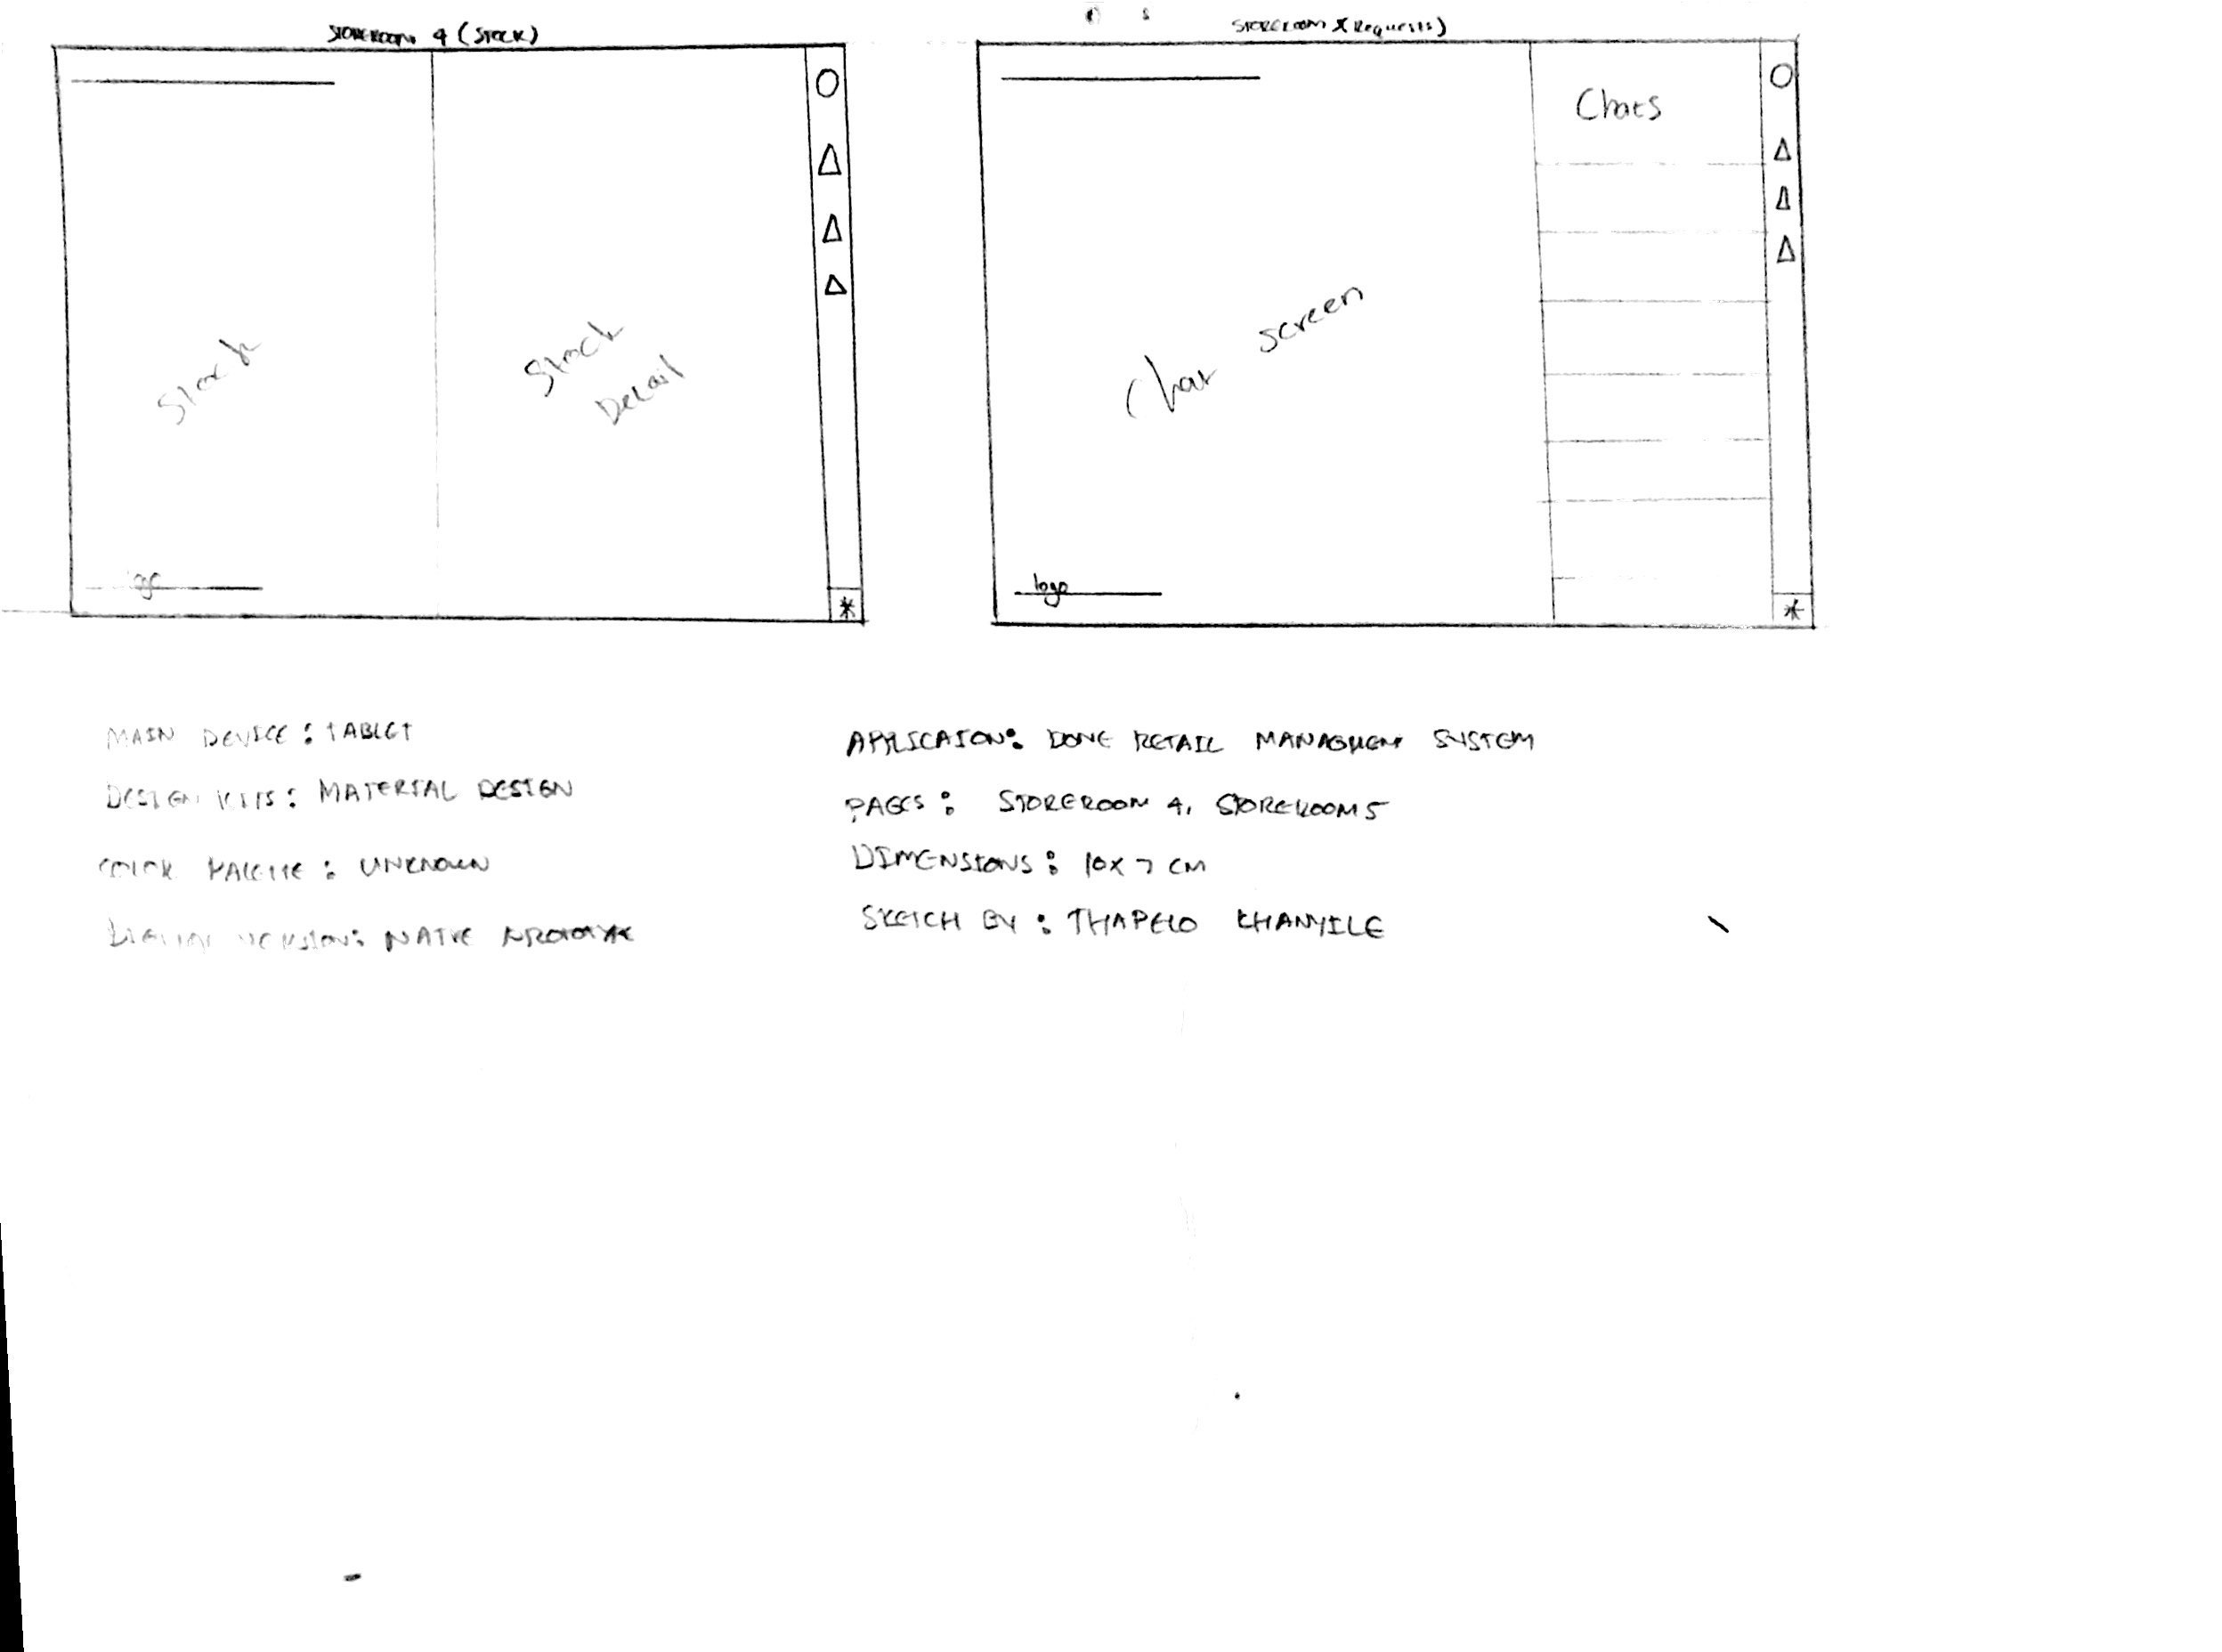 STOREROOM 4 (STOCK)
STOREROOM (Requests)
Stock
Stock
Detail
logo
Chats
Chat screen
logo
MAIN DEVICE : TABLET
DESIGN KITS : MATERIAL DESIGN
COLOR PALETTE : UNKNOWN
DIGITAL VERSION : NATIVE PROTOTYPE
APPLICAION : DONE RETAIL MANAGMENT SYSTEM
PAGES : STOREROOM 4, STOREROOM 5
DIMENSIONS : 10 X 7 CM
SKETCH BY : THAPELO KHANYILE